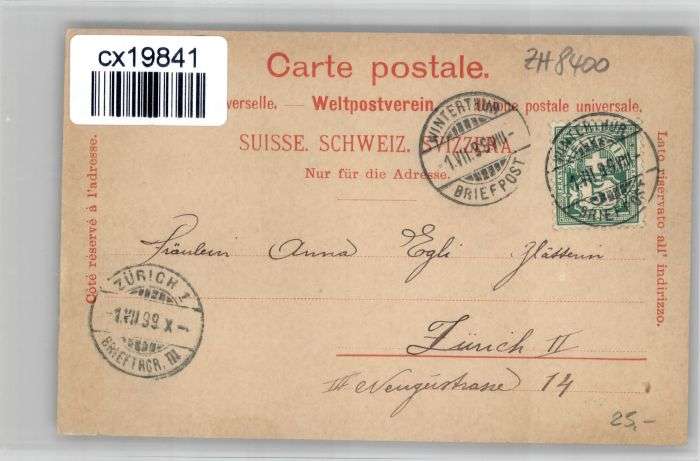 cx19841
ZH8400
Carte postale.
verselle. — Weltpostverein. — Unione postale universale.
SUISSE. SCHWEIZ. SVIZZERA.
Nur für die Adresse.
Côté réservé à l'adresse.
Lato riservato all' indirizzo.
WINTERTHUR
1.VII.99.VIII-
BRIEFPOST
WINTERTHUR
BRIEFPOST
Fräulein Anna Egli Glätterin
ZÜRICH 1
1.VII.99.X-
BRIEFTRGR. III
Zürich II
14
25.-